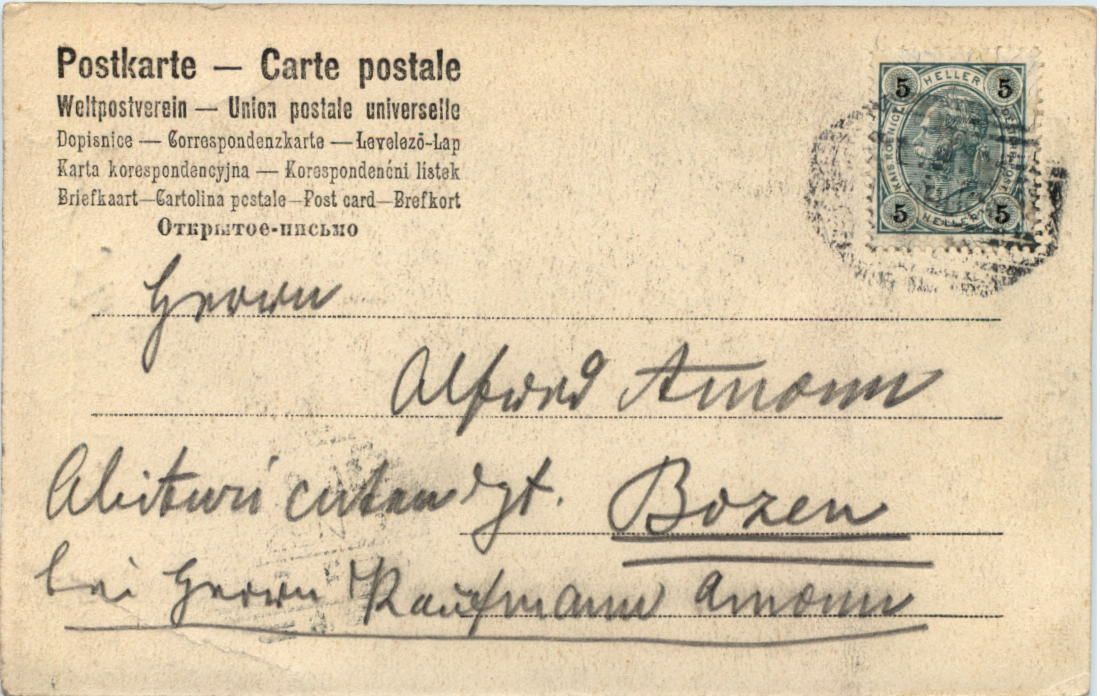 Postkarte — Carte postale
Weltpostverein — Union postale universelle
Dopisnice — Correspondenzkarte — Levelező-Lap
Karta korespondencyjna — Korespondenční listek
Briefkaart—Cartolina postale—Post card—Brefkort
Открытое-письмо
5 HELLER 5
5 HELLER 5
Herrn
Alfred Amonn
Abiturienten dzt. Bozen
bei Herrn Kaufmann Amonn